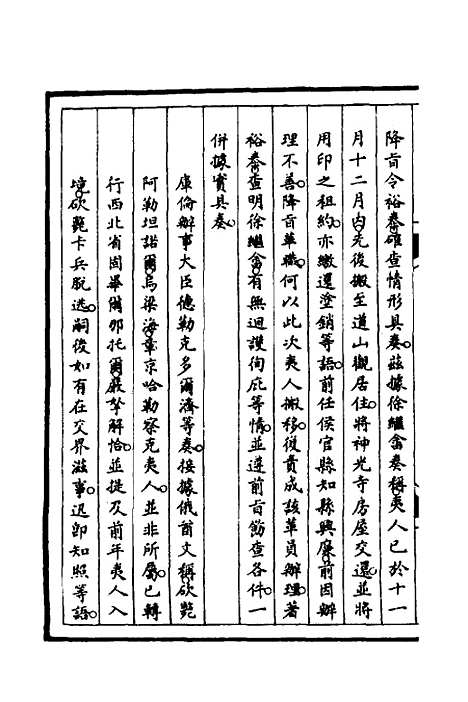 降旨令裕泰確查情形具奏茲據徐繼畬奏稱夷人已於十一
月十二月內先後搬至道山觀居住將神光寺房屋交還並將
用印之租約亦繳還塗銷等語前任侯官縣知縣興廉前因辦
理不善降旨革職何以此次夷人搬移復責成該革員辦理著
裕泰查明徐繼畬有無迴護徇庇等情並遵前旨飭查各件一
併據實具奏
庫倫辦事大臣德勒克多爾濟等奏接據俄酋文稱砍斃
阿勒坦諾爾烏梁海章京哈勒察克夷人並非所屬已轉
行西北省固畢爾那托爾嚴拏解恰並提及前年夷人入
境砍斃卡兵脫逃嗣後如有在交界滋事迅即知照等語